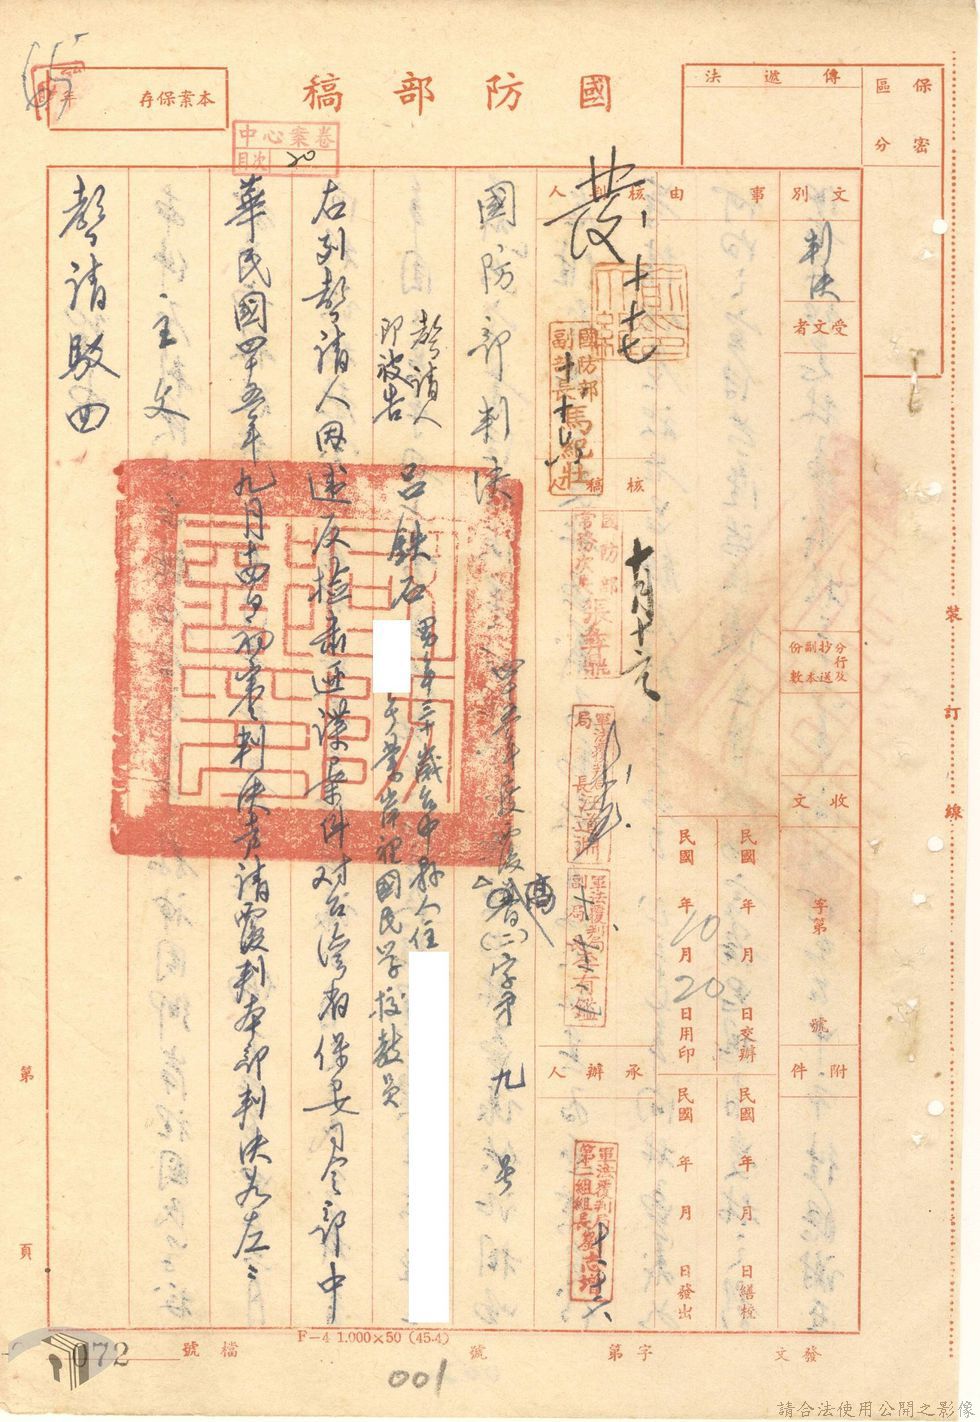 國防部稿
本案保存
傳遞法
保密
區分
中心案卷
目次 20
文別
判決
受文者
事由
核判人
發
十七
國防部
副部長馬紀壯
核稿人
十月十六
國防部
常務次長
軍法覆判局
局長汪道淵
軍法覆判局
副局長
承辦人
軍法覆判局
第二組組長
分行及抄送副本份數
收文
字第 號
附件
民國 年 月 日交辦
民國 年 月 日繕校
民國 年 10月 20日用印
民國 年 月 日發出
國防部判決
四五年度覆高(二)字第九號
聲請人
即被告
呂鉄石 男年三十歲台中縣人住
岸裡國民学校教員
右列聲請人因違反檢肅匪諜案件对台灣省保安司令部中
華民國四十五年九月十四日初審判決聲請覆判本部判決如左:
主文
聲請駁回
裝訂線
第 頁
F-4 1.000×50 (45.4)
檔號
072
發文 字第 號
001
請合法使用公開之影像